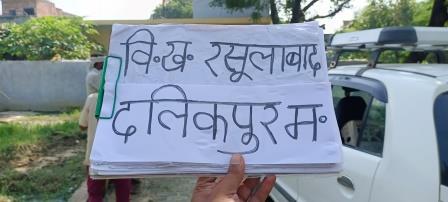 वि॰ख॰ रसूलाबाद
दलिकपुरम॰